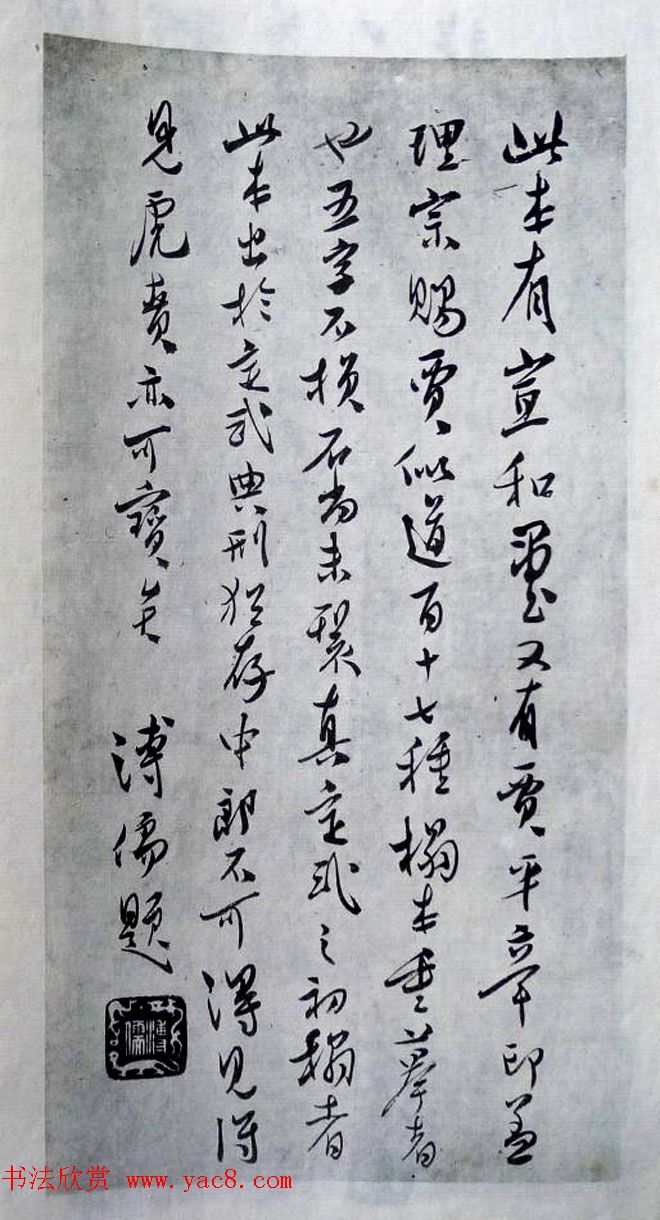 此本有宣和璽又有賈平章印蓋
理宗賜賈似道百十七種榻本重摹者
也五字不損石尚未裂真定武之初榻者
此本出於定武典刑猶存中郎不可得見得
見虎賁亦可寶矣
溥儒題
溥儒
书法欣赏 www.yac8.com